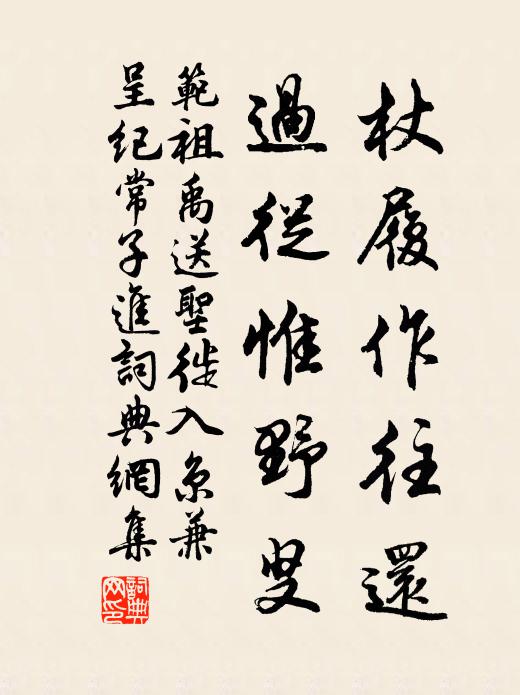 杖履作往還
過從惟野叟
範祖禹送聖徙入京兼
呈紀常子進詞典網集
詞典网印